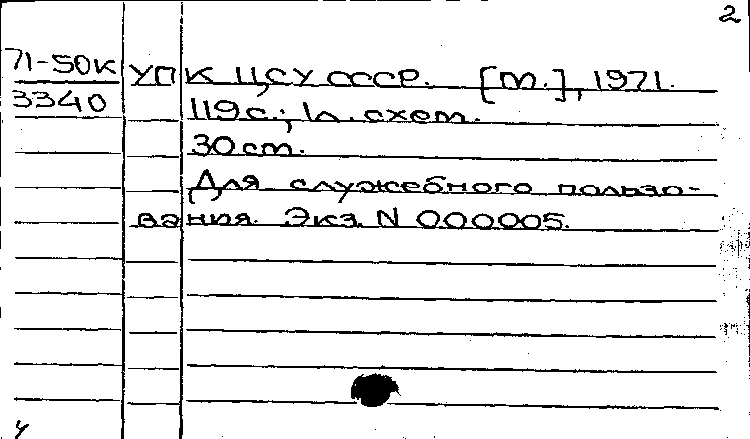 2
71-50К УПК ЦСУ СССР. [М.], 1971.
3340 119 с.; 1 л. схем.
30 см.
Для служебного пользо-
вания. Экз. N 000005.